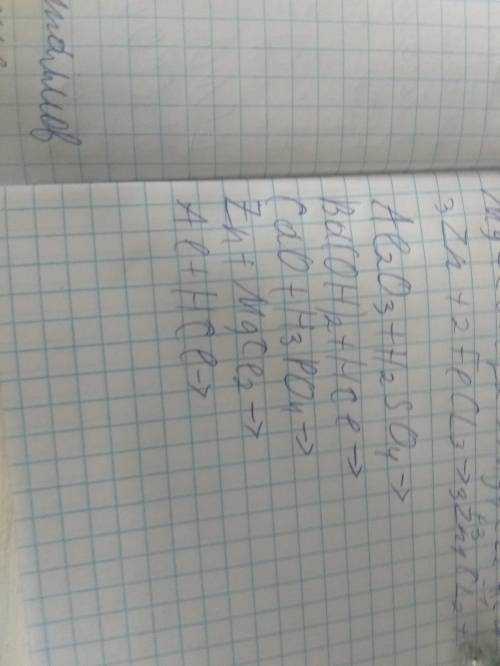 3Zn + 2FeCl3 → 3Zn+2Cl2 +
Al2O3 + H2SO4 →
Ba(OH)2 + HCl →
CaO + H3PO4 →
Zn + MgCl2 →
Al + HCl →